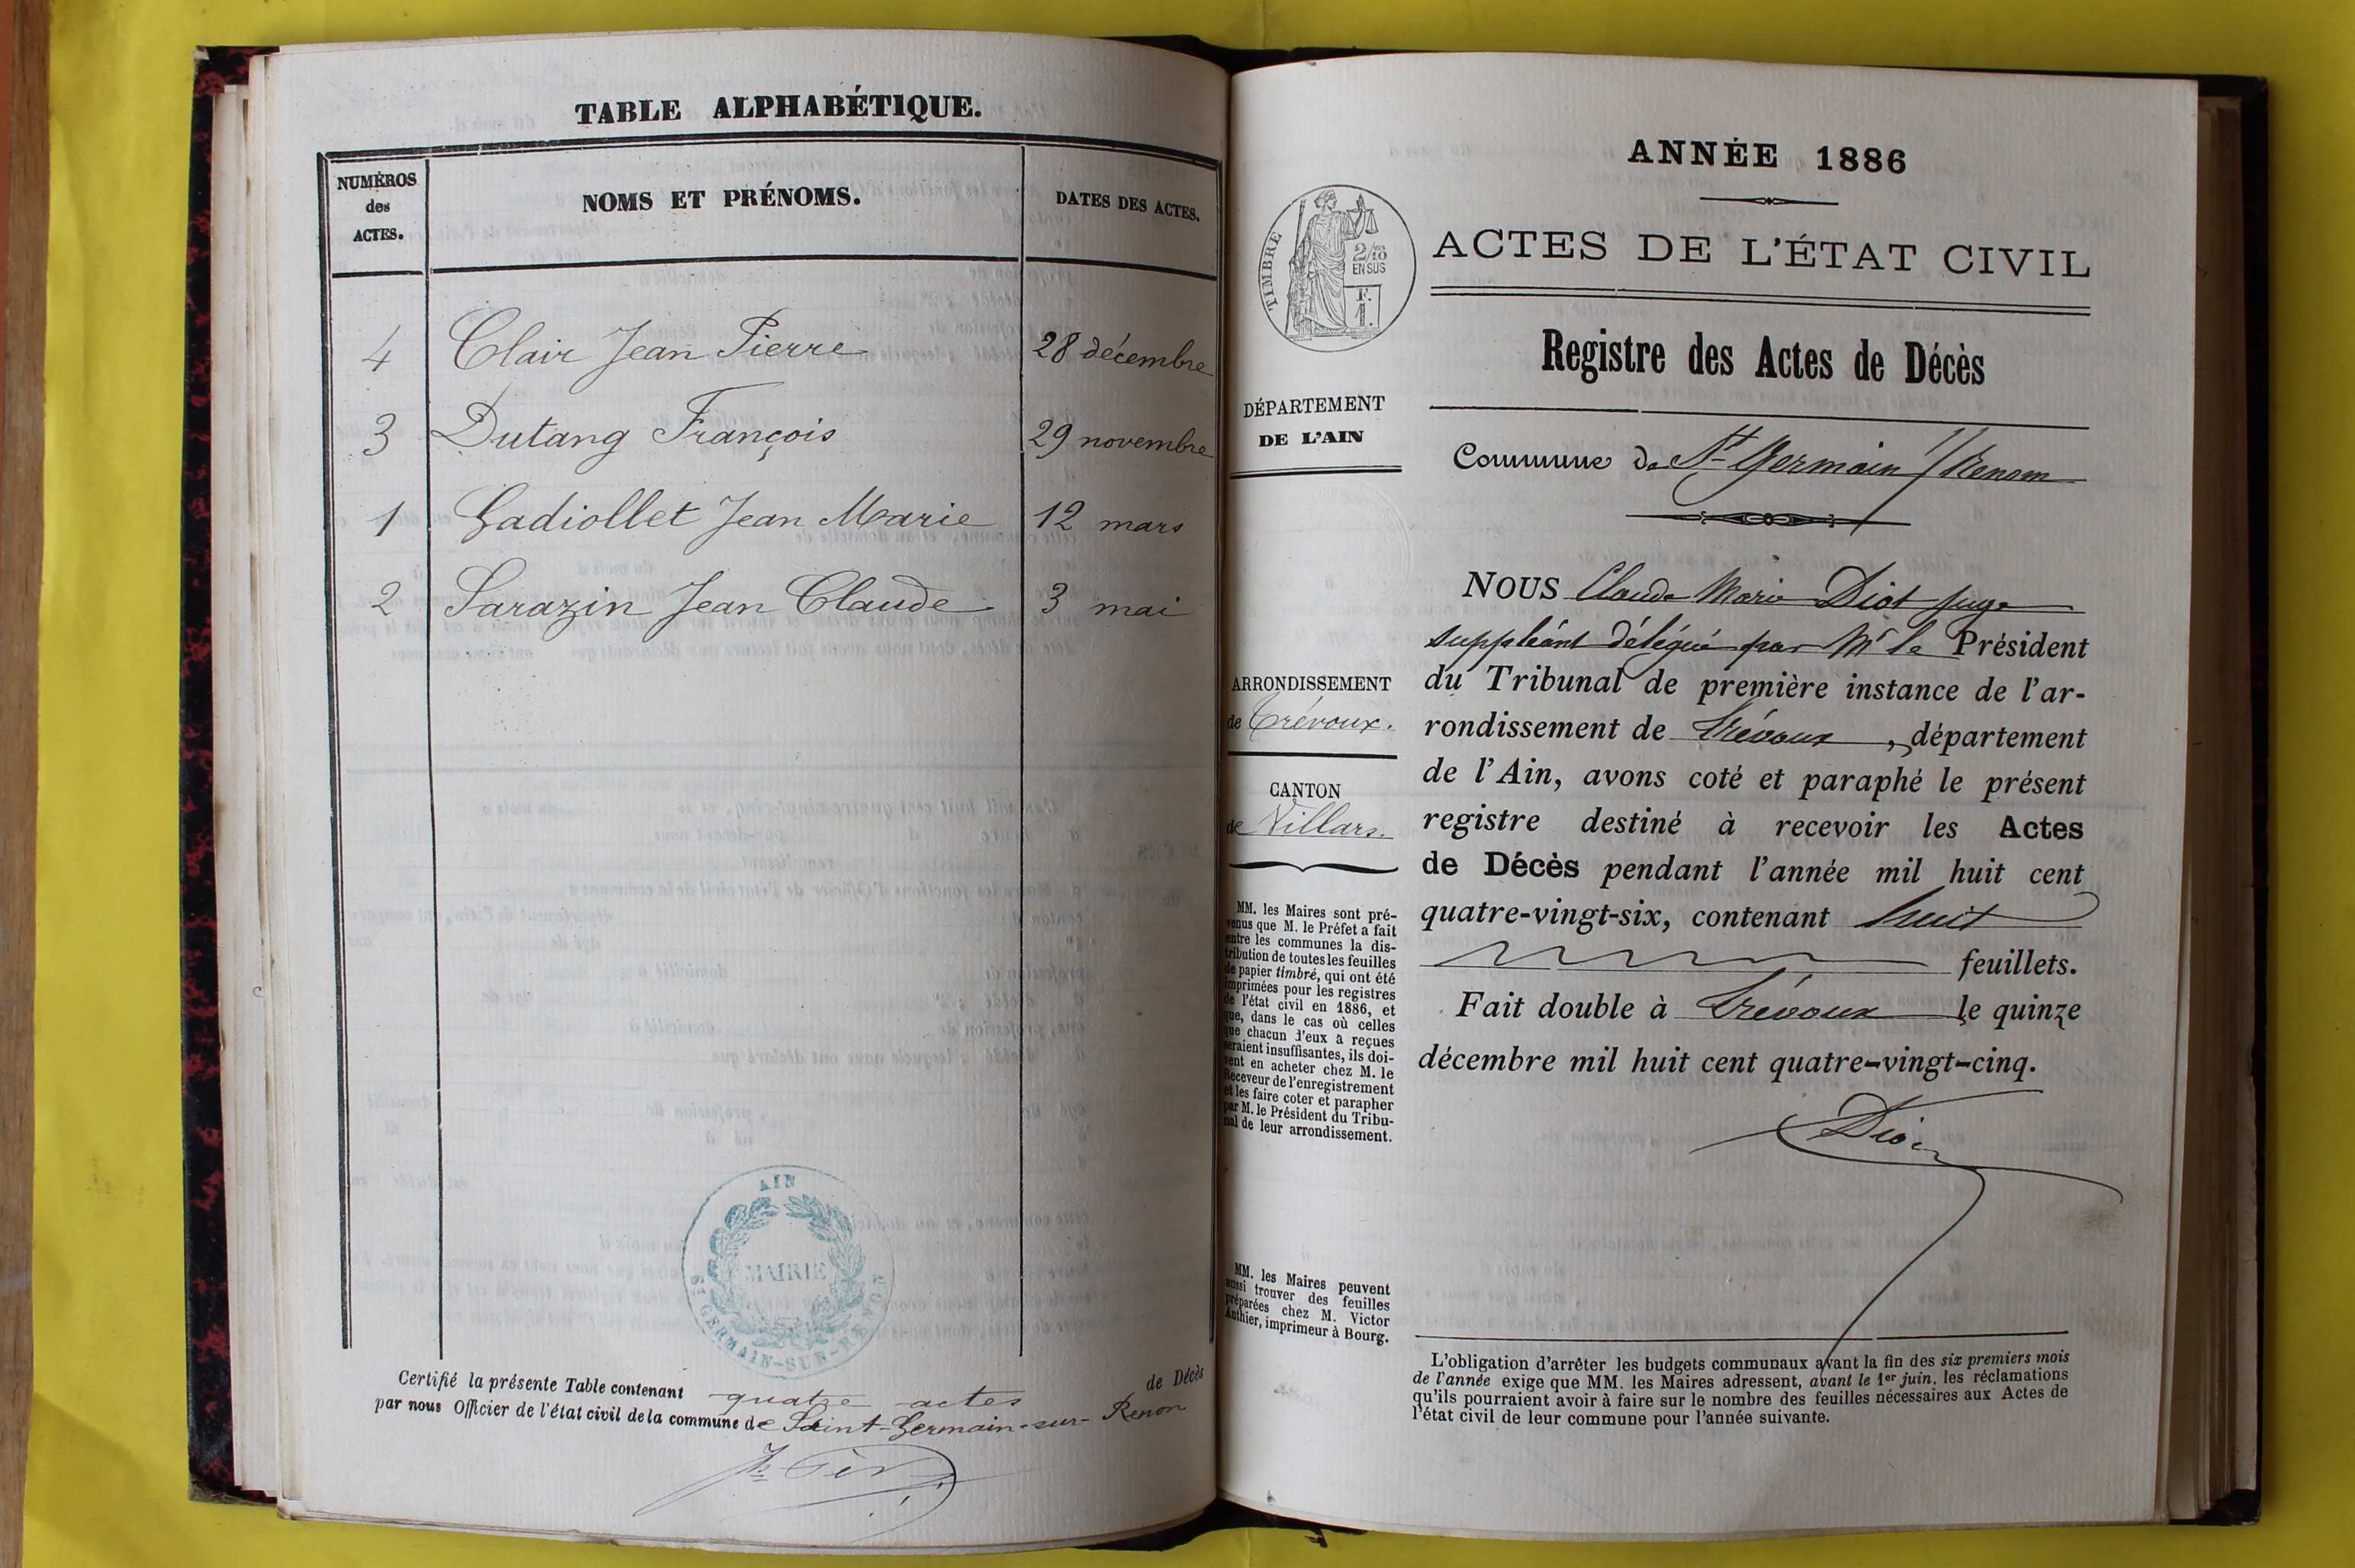 TABLE ALPHABÉTIQUE.
NUMÉROS
des
ACTES.
NOMS ET PRÉNOMS.
DATES DES ACTES.
4 Clair Jean Pierre 28 décembre
3 Dutang François 29 novembre
1 Gadiollet Jean Marie 12 mars
2 Sarazin Jean Claude 3 mai
AIN
MAIRIE
ST GERMAIN-SUR-RENON
Certifié la présente Table contenant quatre actes de Décès
par nous Officier de l'état civil de la commune de Saint-Germain-sur-Renon
ANNÉE 1886
TIMBRE
2/10
EN SUS
F.
1.
ACTES DE L'ÉTAT CIVIL
Registre des Actes de Décès
DÉPARTEMENT
DE L'AIN
Commune de St Germain s/ Renom
NOUS Claude Marie Diot juge
suppléant délégué par Mr le Président
du Tribunal de première instance de l'ar-
rondissement de Trévoux, département
de l'Ain, avons coté et paraphé le présent
registre destiné à recevoir les Actes
de Décès pendant l'année mil huit cent
quatre-vingt-six, contenant huit
feuillets.
Fait double à Trévoux le quinze
décembre mil huit cent quatre-vingt-cinq.
Diot
ARRONDISSEMENT
de Trévoux.
CANTON
de Villars.
MM. les Maires sont pré-
venus que M. le Préfet a fait
entre les communes la dis-
tribution de toutes les feuilles
de papier timbré, qui ont été
imprimées pour les registres
de l'état civil en 1886, et
que, dans le cas où celles
que chacun d'eux a reçues
seraient insuffisantes, ils doi-
vent en acheter chez M. le
Receveur de l'enregistrement
et les faire coter et parapher
par M. le Président du Tribu-
nal de leur arrondissement.
MM. les Maires peuvent
aussi trouver des feuilles
préparées chez M. Victor
Authier, imprimeur à Bourg.
L'obligation d'arrêter les budgets communaux avant la fin des six premiers mois
de l'année exige que MM. les Maires adressent, avant le 1er juin, les réclamations
qu'ils pourraient avoir à faire sur le nombre des feuilles nécessaires aux Actes de
l'état civil de leur commune pour l'année suivante.